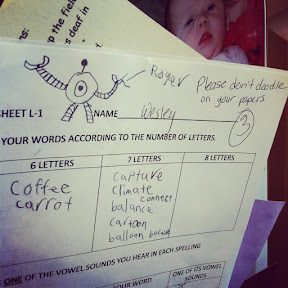 the fiel
deaf in
Roger
Please don't doodle
on your papers
SHEET L-1
NAME Wesley
3
YOUR WORDS ACCORDING TO THE NUMBER OF LETTERS.
6 LETTERS 7 LETTERS 8 LETTERS
Coffee
carrot
capture
climate
connect
balance
cartoon
balloon because
ONE OF THE VOWEL SOUNDS YOU HEAR IN EACH SPELLING
YOUR WORD
ONE OF ITS VOWEL
SOUNDS